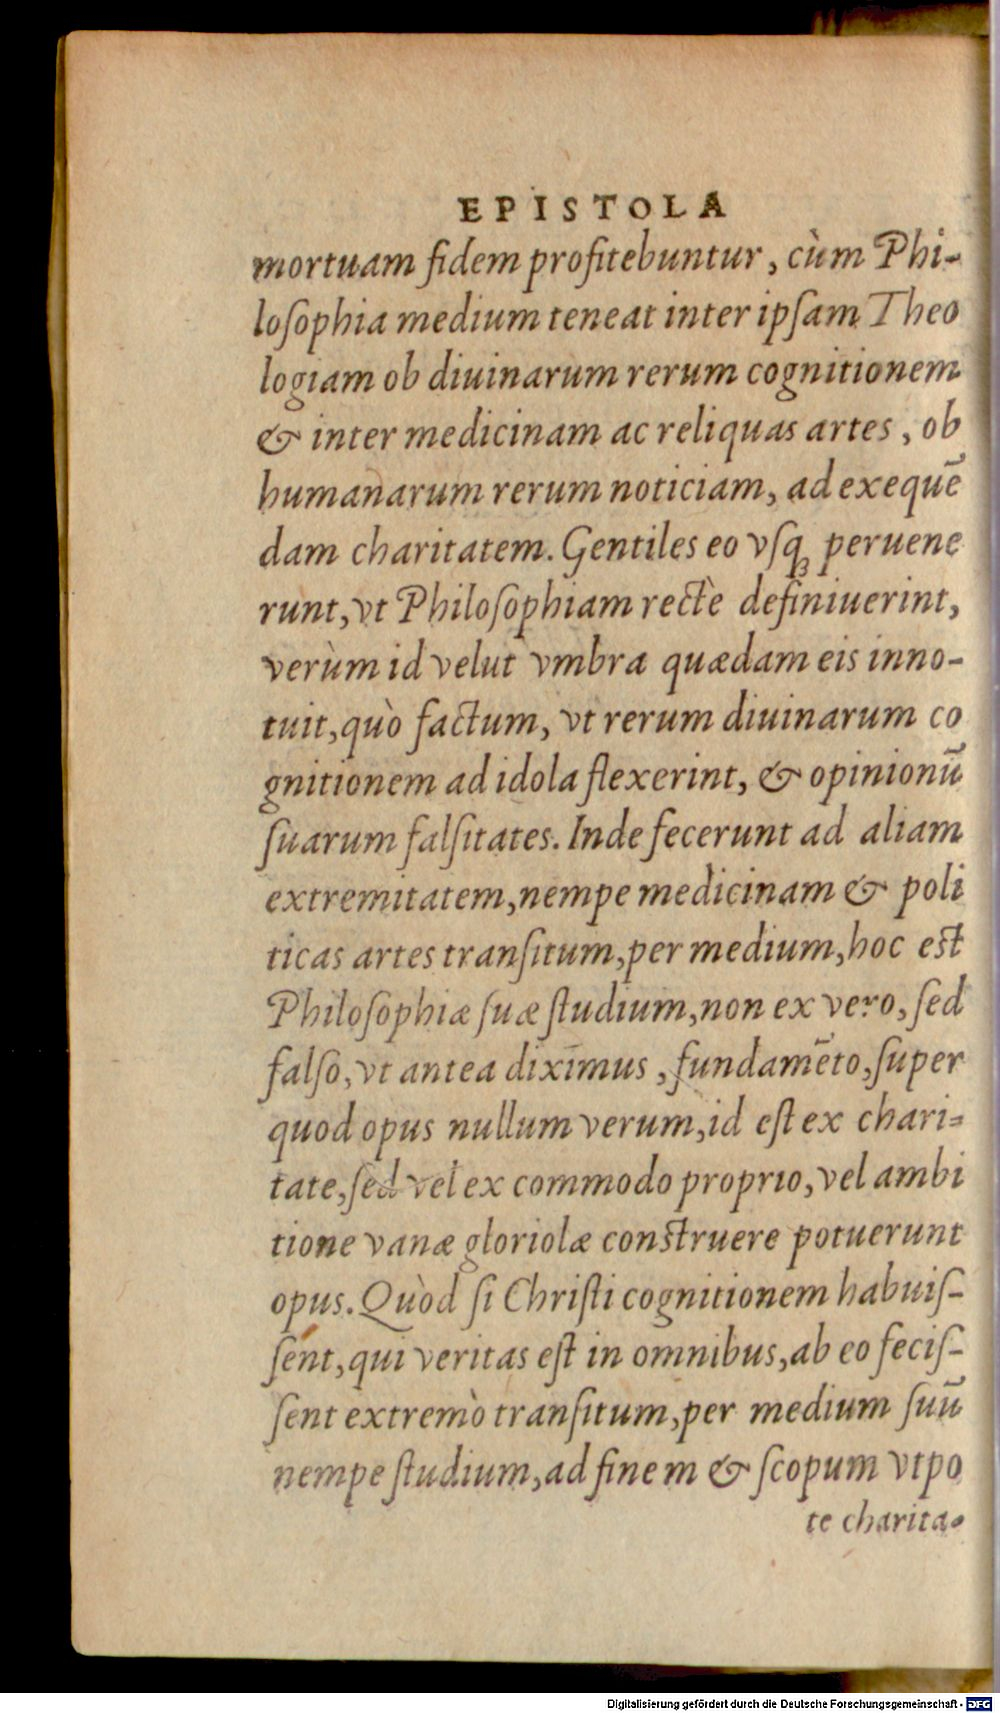 EPISTOLA
mortuam fidem profitebuntur, cùm Phi-
loſophia medium teneat inter ipſam Theo
logiam ob diuinarum rerum cognitionem
& inter medicinam ac reliquas artes, ob
humanarum rerum noticiam, ad exequē
dam charitatem. Gentiles eo vſqꝫ peruene
runt, vt Philoſophiam rectè definiuerint,
verùm id velut vmbra quædam eis inno-
tuit, quò factum, vt rerum diuinarum co
gnitionem ad idola flexerint, & opinionū
ſuarum falſitates. Inde fecerunt ad aliam
extremitatem, nempe medicinam & poli
ticas artes tranſitum, per medium, hoc est
Philoſophiæ ſuæ ſtudium, non ex vero, ſed
falſo, vt antea diximus, fundamēto, ſuper
quod opus nullum verum, id eſt ex chari=
tate, ſed vel ex commodo proprio, vel ambi
tione vanæ gloriolæ construere potuerunt
opus. Quòd ſi Chriſti cognitionem habuiſ-
ſent, qui veritas eſt in omnibus, ab eo feciſ-
ſent extremò tranſitum, per medium ſuū
nempe ſtudium, ad finem & ſcopum vtpo
te charita-
Digitalisierung gefördert durch die Deutsche Forschungsgemeinschaft - DFG